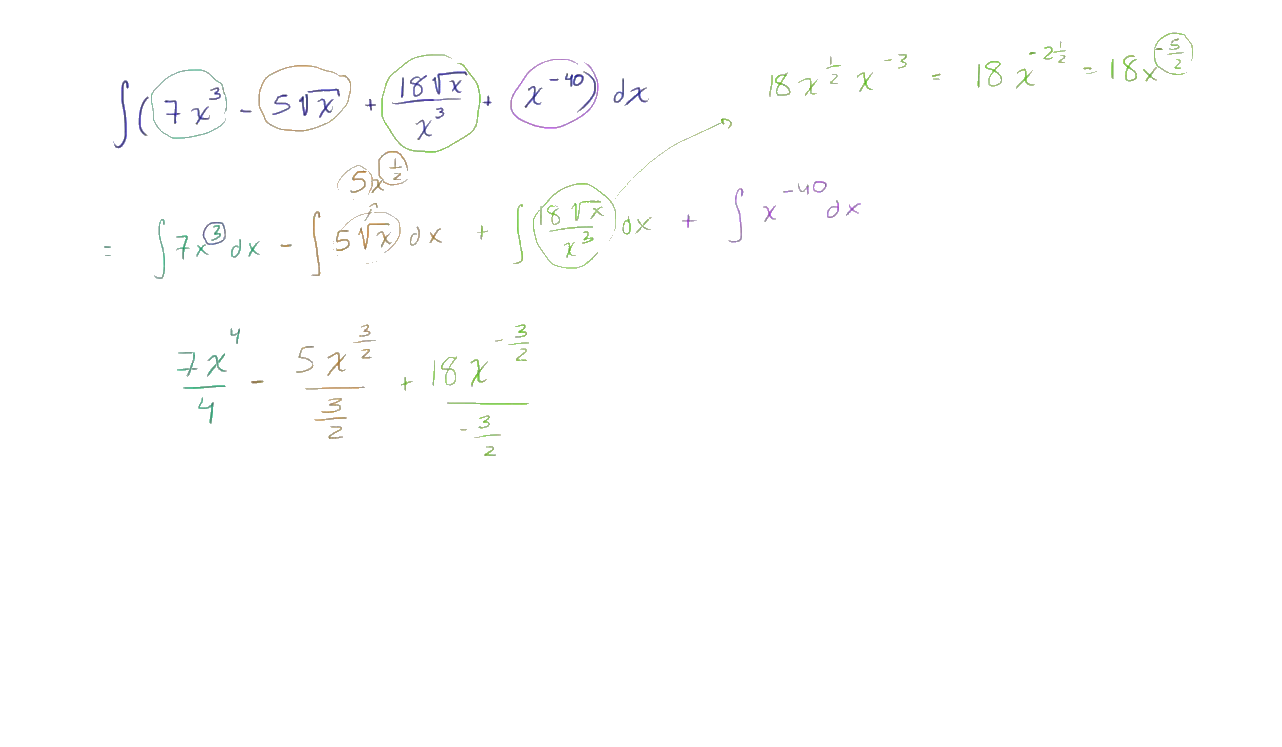 ∫( 7x³ - 5√x + 18√x/x³ + x⁻⁴⁰) dx
18x^(1/2) x⁻³ = 18x^(-2 1/2) = 18x^(-5/2)
5x^(1/2)
= ∫7x³dx - ∫5√x dx + ∫18√x/x³ dx + ∫x⁻⁴⁰dx
7x⁴/4 - 5x^(3/2)/(3/2) + 18x^(-3/2)/(-3/2)